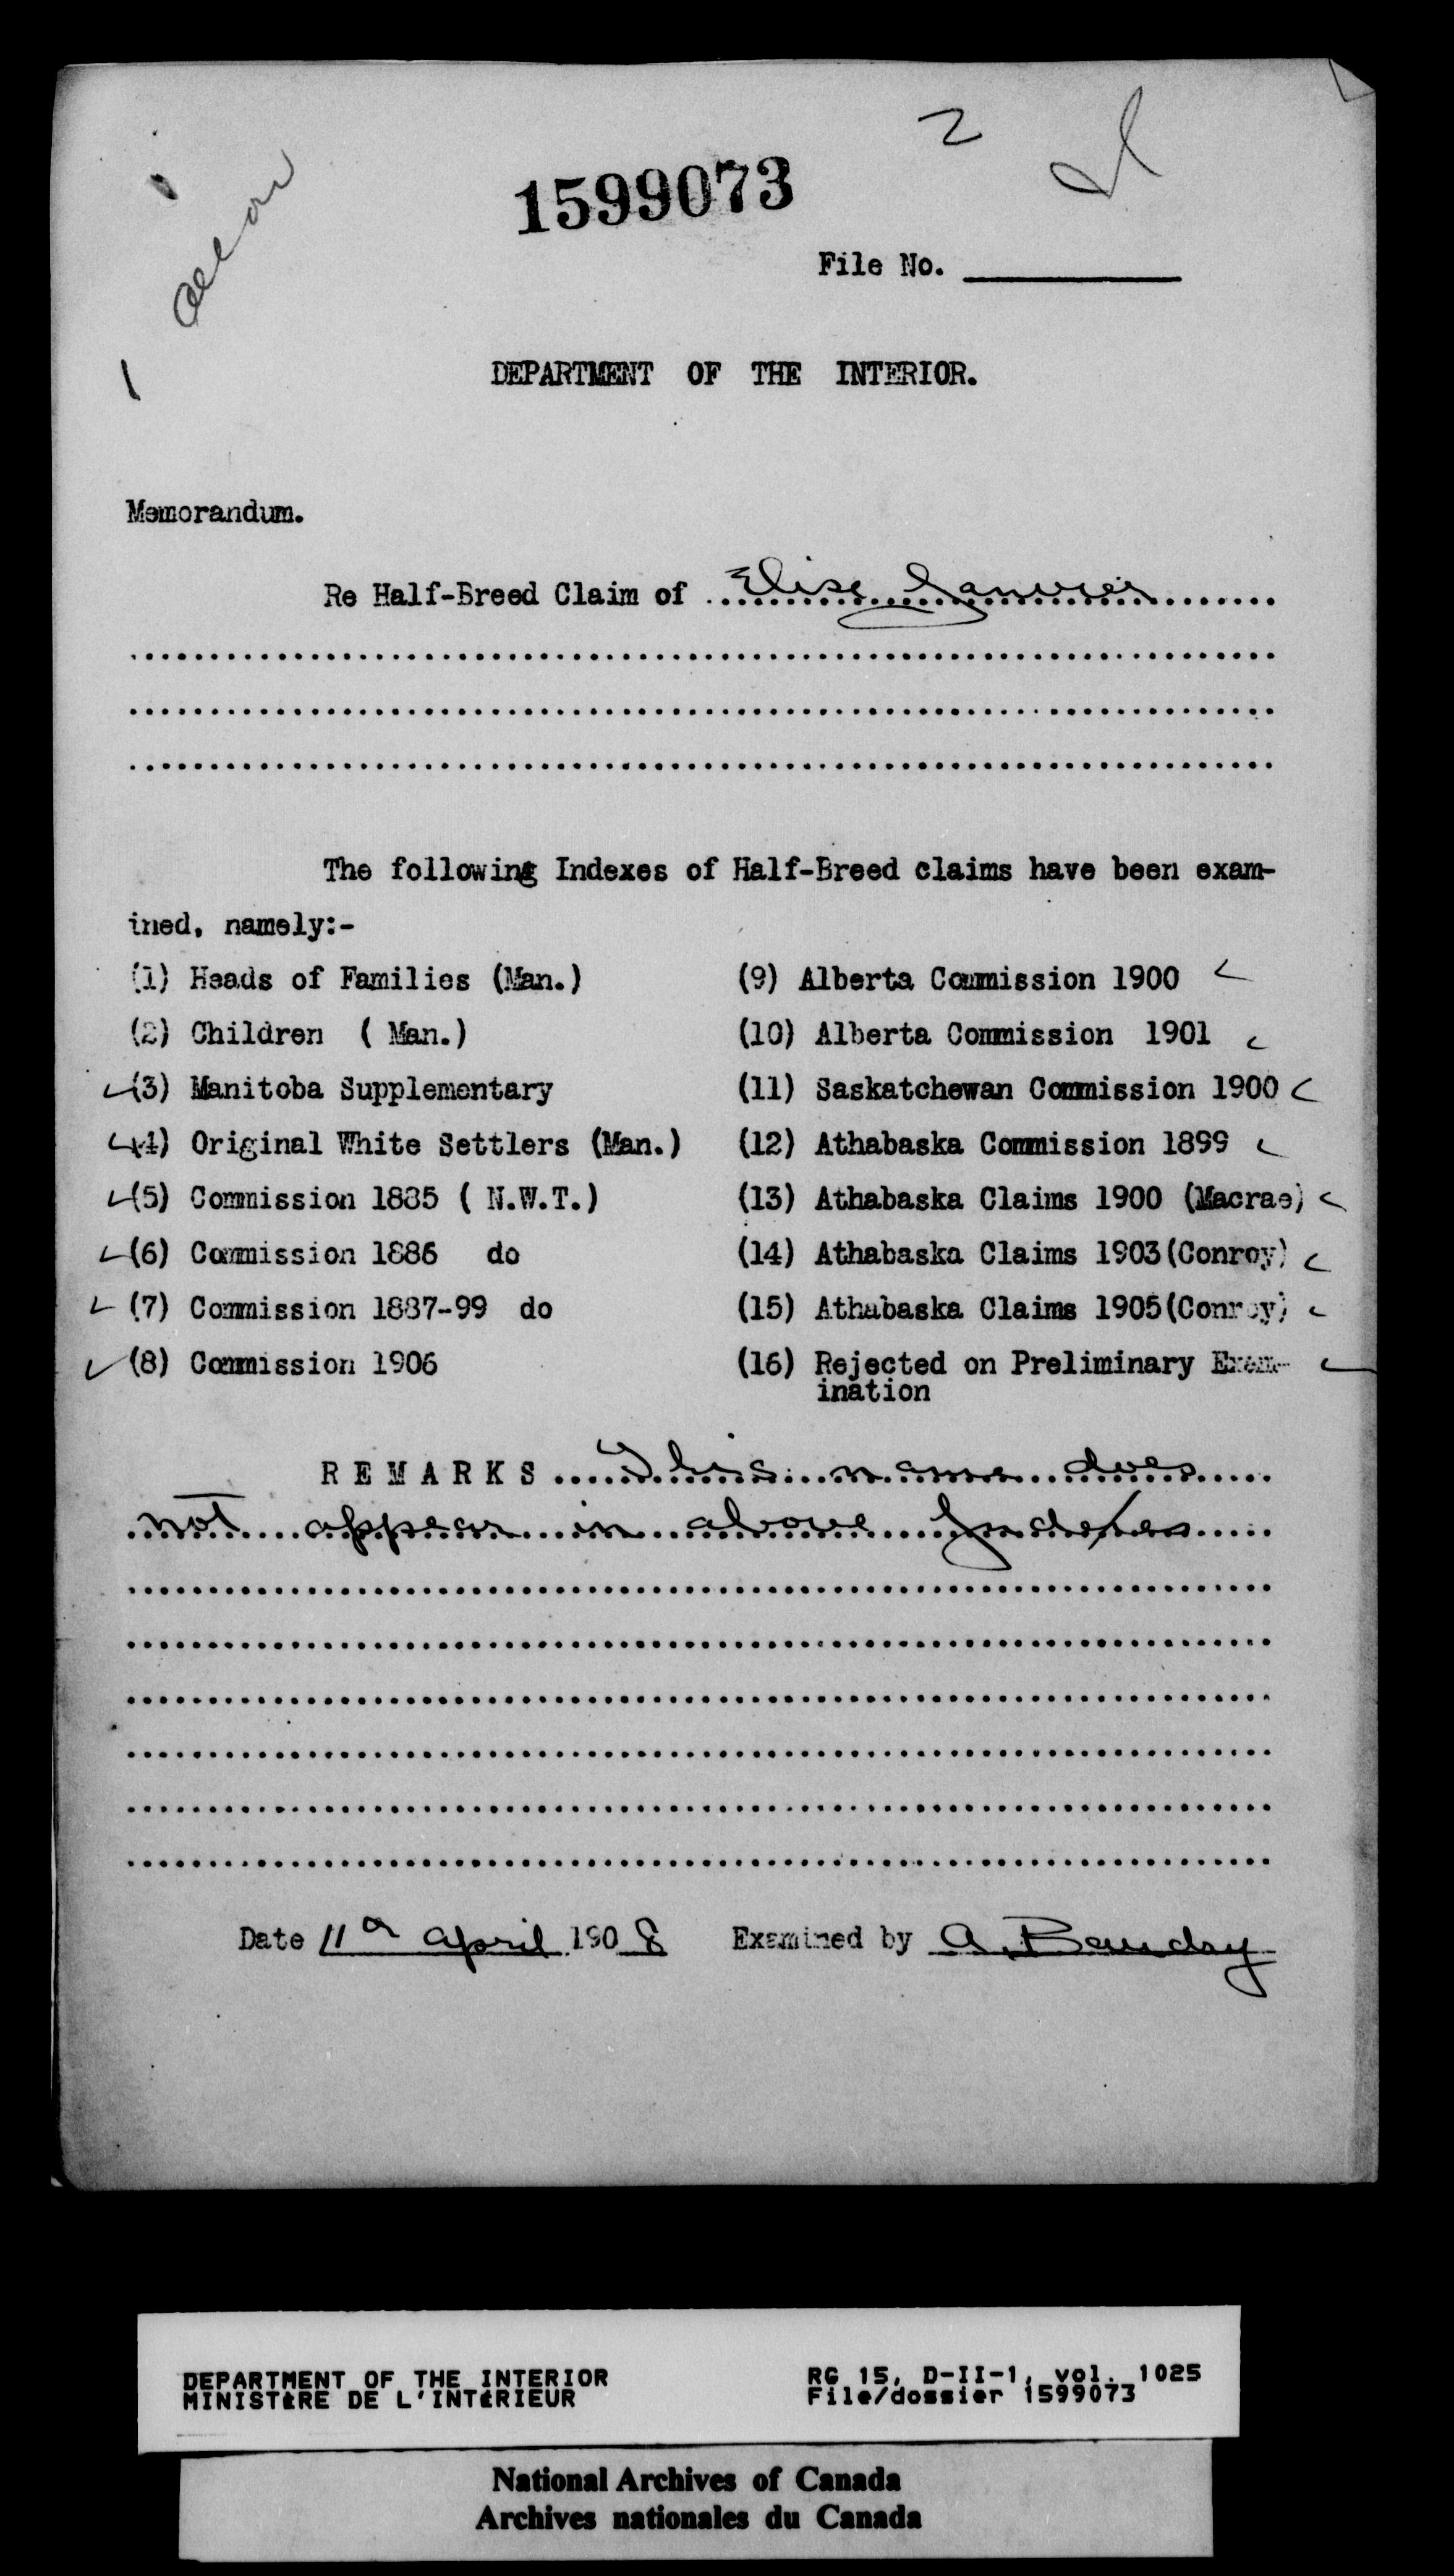 2
1599073
File No.
DEPARTMENT OF THE INTERIOR.
Memorandum.
Re Half-Breed Claim of Elise Janvier
The following Indexes of Half-Breed claims have been exam-
ined, namely:-
(1) Heads of Families (Man.)
(2) Children ( Man.)
(3) Manitoba Supplementary
(4) Original White Settlers (Man.)
(5) Commission 1885 ( N.W.T.)
(6) Commission 1886 do
(7) Commission 1887-99 do
(8) Commission 1906
(9) Alberta Commission 1900
(10) Alberta Commission 1901
(11) Saskatchewan Commission 1900
(12) Athabaska Commission 1899
(13) Athabaska Claims 1900 (Macrae)
(14) Athabaska Claims 1903(Conroy)
(15) Athabaska Claims 1905(Conroy)
(16) Rejected on Preliminary Exam-
ination
REMARKS This name does
not appear in above Indexes
Date 11 April 1908 Examined by A. Beaudry
DEPARTMENT OF THE INTERIOR
MINISTÈRE DE L'INTÉRIEUR
RG 15, D-II-1, vol. 1025
File/dossier 1599073
National Archives of Canada
Archives nationales du Canada